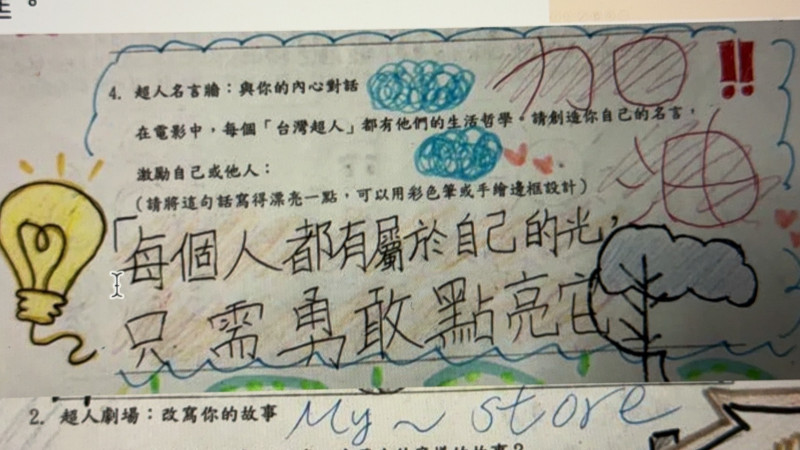 4. 超人名言牆：與你的內心對話
加
!!
在電影中，每個「台灣超人」都有他們的生活哲學。請創造你自己的名言，
激勵自己或他人：
油
(請將這句話寫得漂亮一點，可以用彩色筆或手繪邊框設計)
「每個人都有屬於自己的光，
只需勇敢點亮它
2. 超人劇場：改寫你的故事 My ~ store